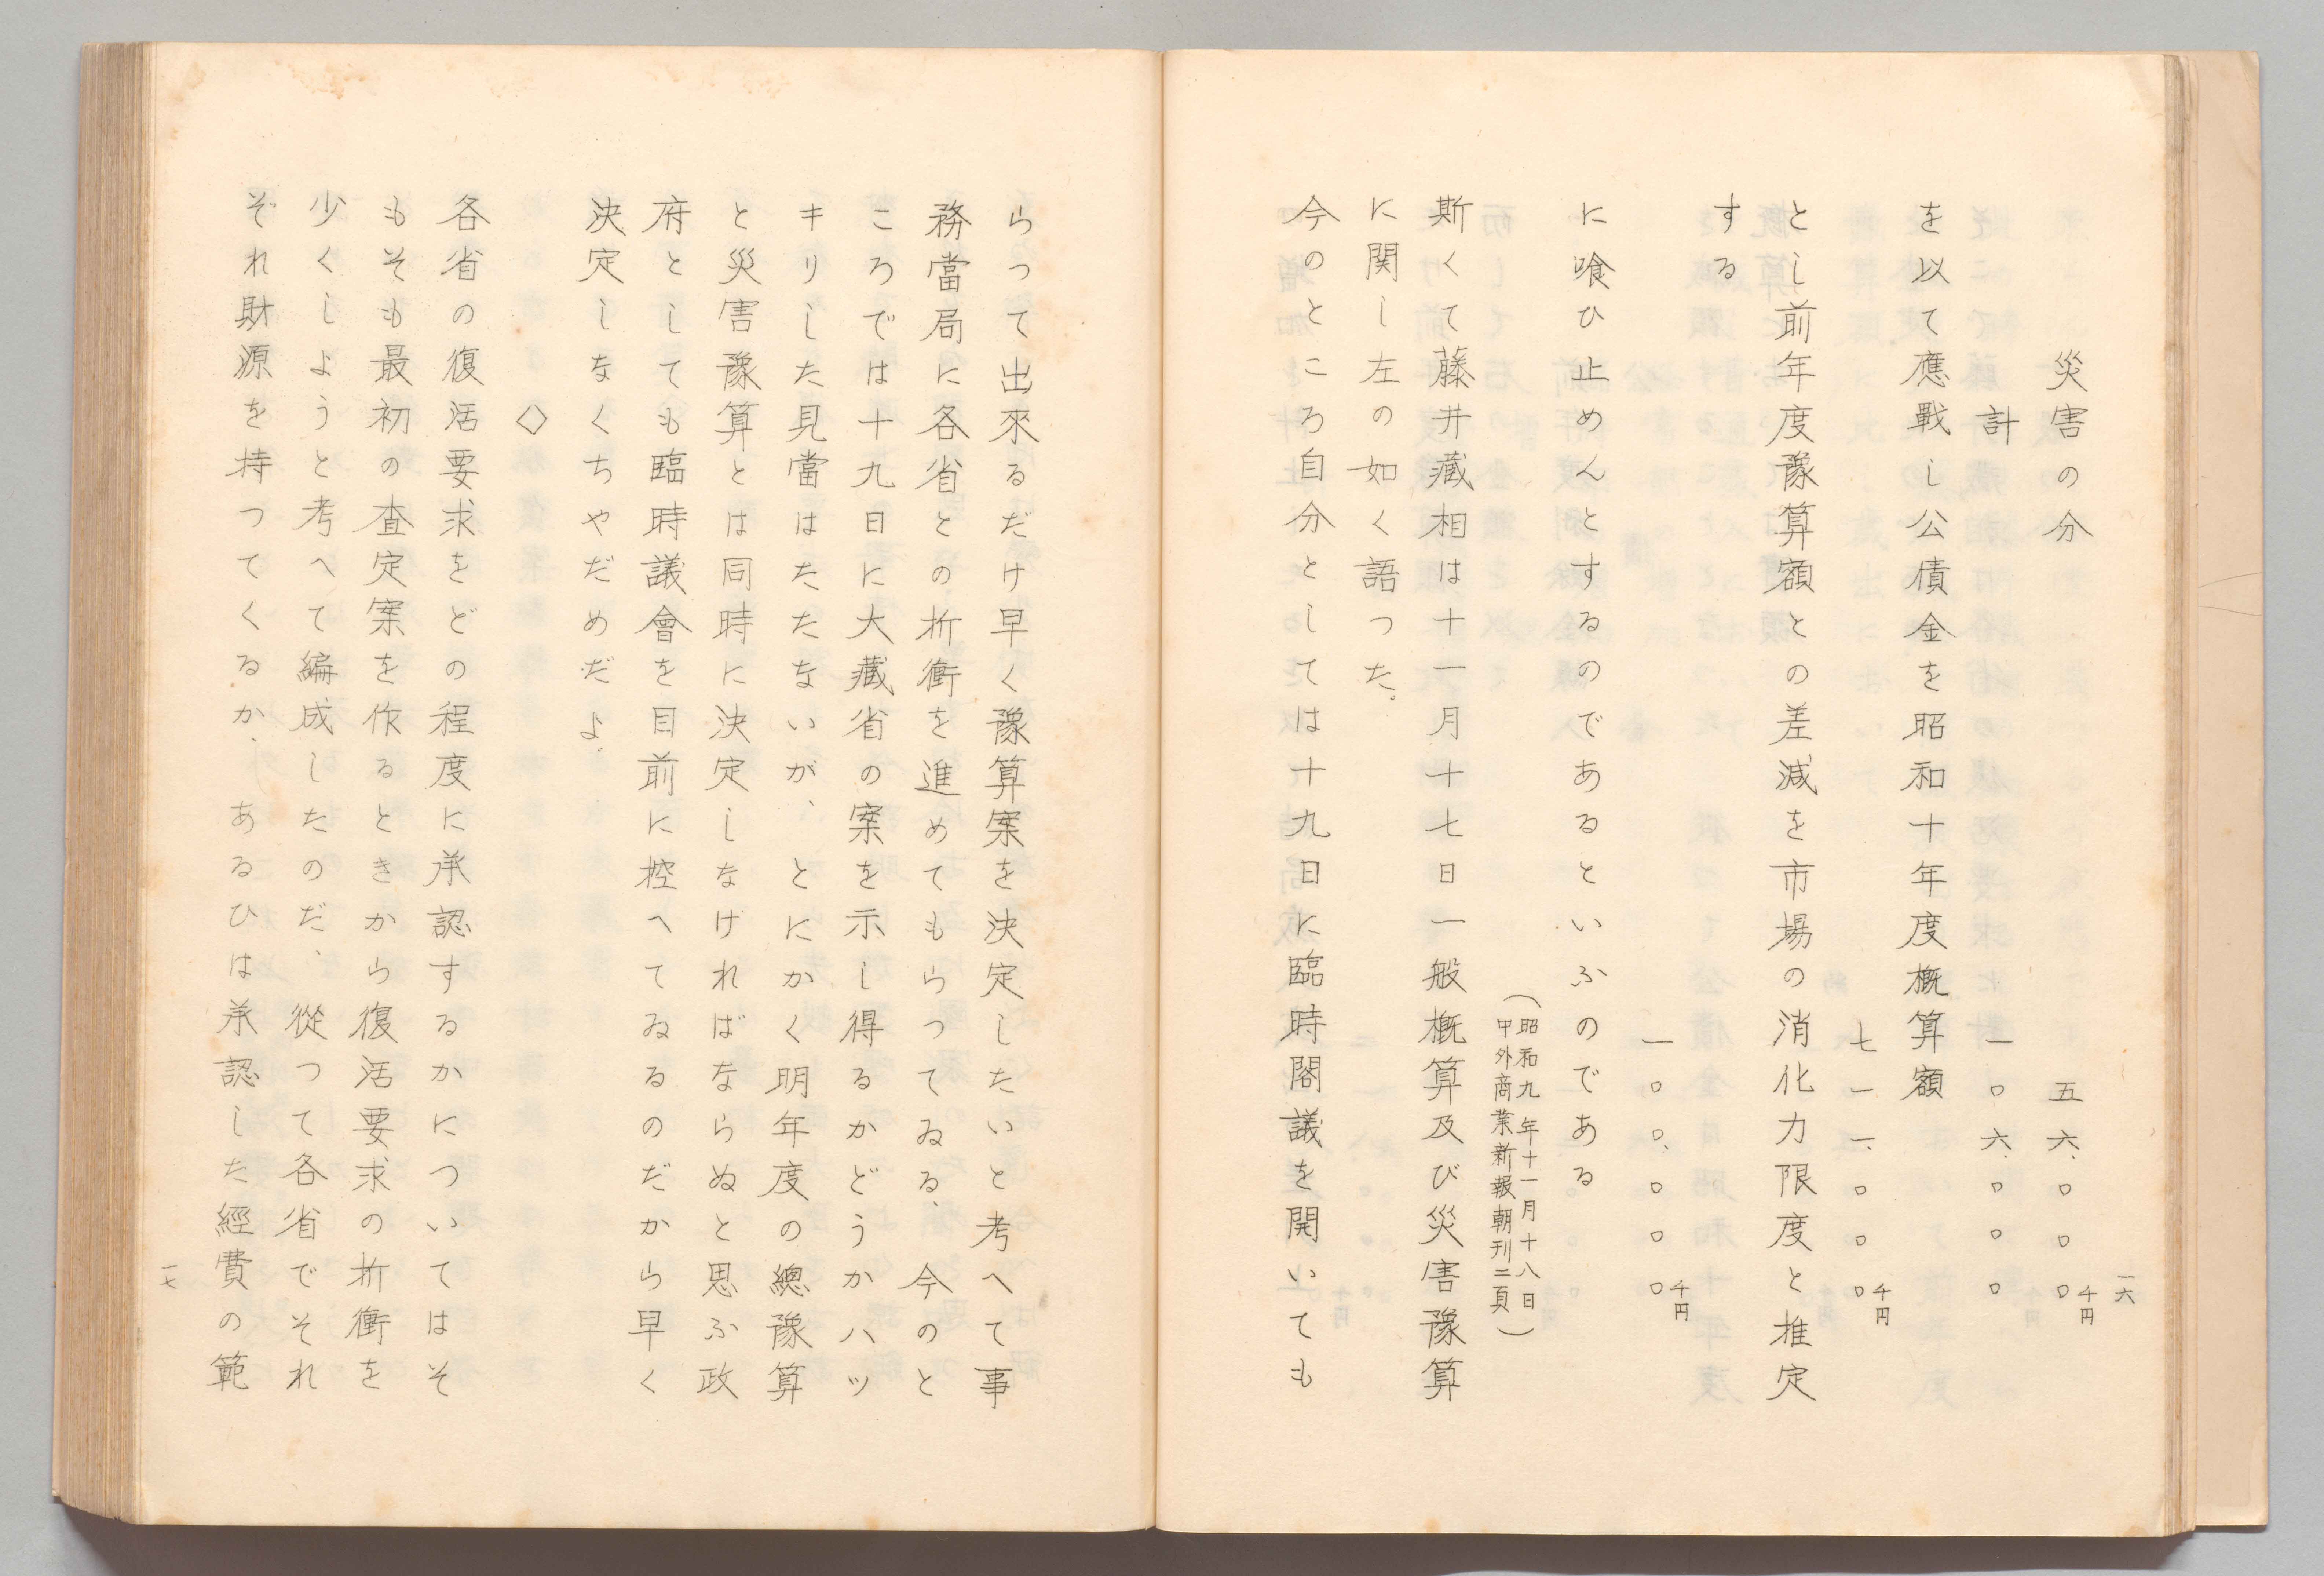 一六
災害の分 五六、〇〇〇千円
計 一〇六、〇〇〇
を以て應戰し公債金を昭和十年度概算額
七一一、〇〇〇千円
とし前年度豫算額との差減を市場の消化力限度と推定
する
一〇〇、〇〇〇千円
に喰ひ止めんとするのであるといふのである
(昭和九年十一月十八日
中外商業新報朝刊二頁)
斯くて藤井藏相は十一月十七日一般概算及び災害豫算
に関し左の如く語つた。
今のところ自分としては十九日に臨時閣議を開いても
らつて出來るだけ早く豫算案を決定したいと考へて事
務當局に各省との折衝を進めてもらつてゐる、今のと
ころでは十九日に大藏省の案を示し得るかどうかハツ
キリした見當はたたないが、とにかく明年度の總豫算
と災害豫算とは同時に決定しなければならぬと思ふ政
府としても臨時議會を目前に控へてゐるのだから早く
決定しなくちやだめだよ、
◇
各省の復活要求をどの程度に承認するかについてはそ
もそも最初の査定案を作るときから復活要求の折衝を
少くしようと考へて編成したのだ、從つて各省でそれ
ぞれ財源を持つてくるか、あるひは承認した經費の範
一七